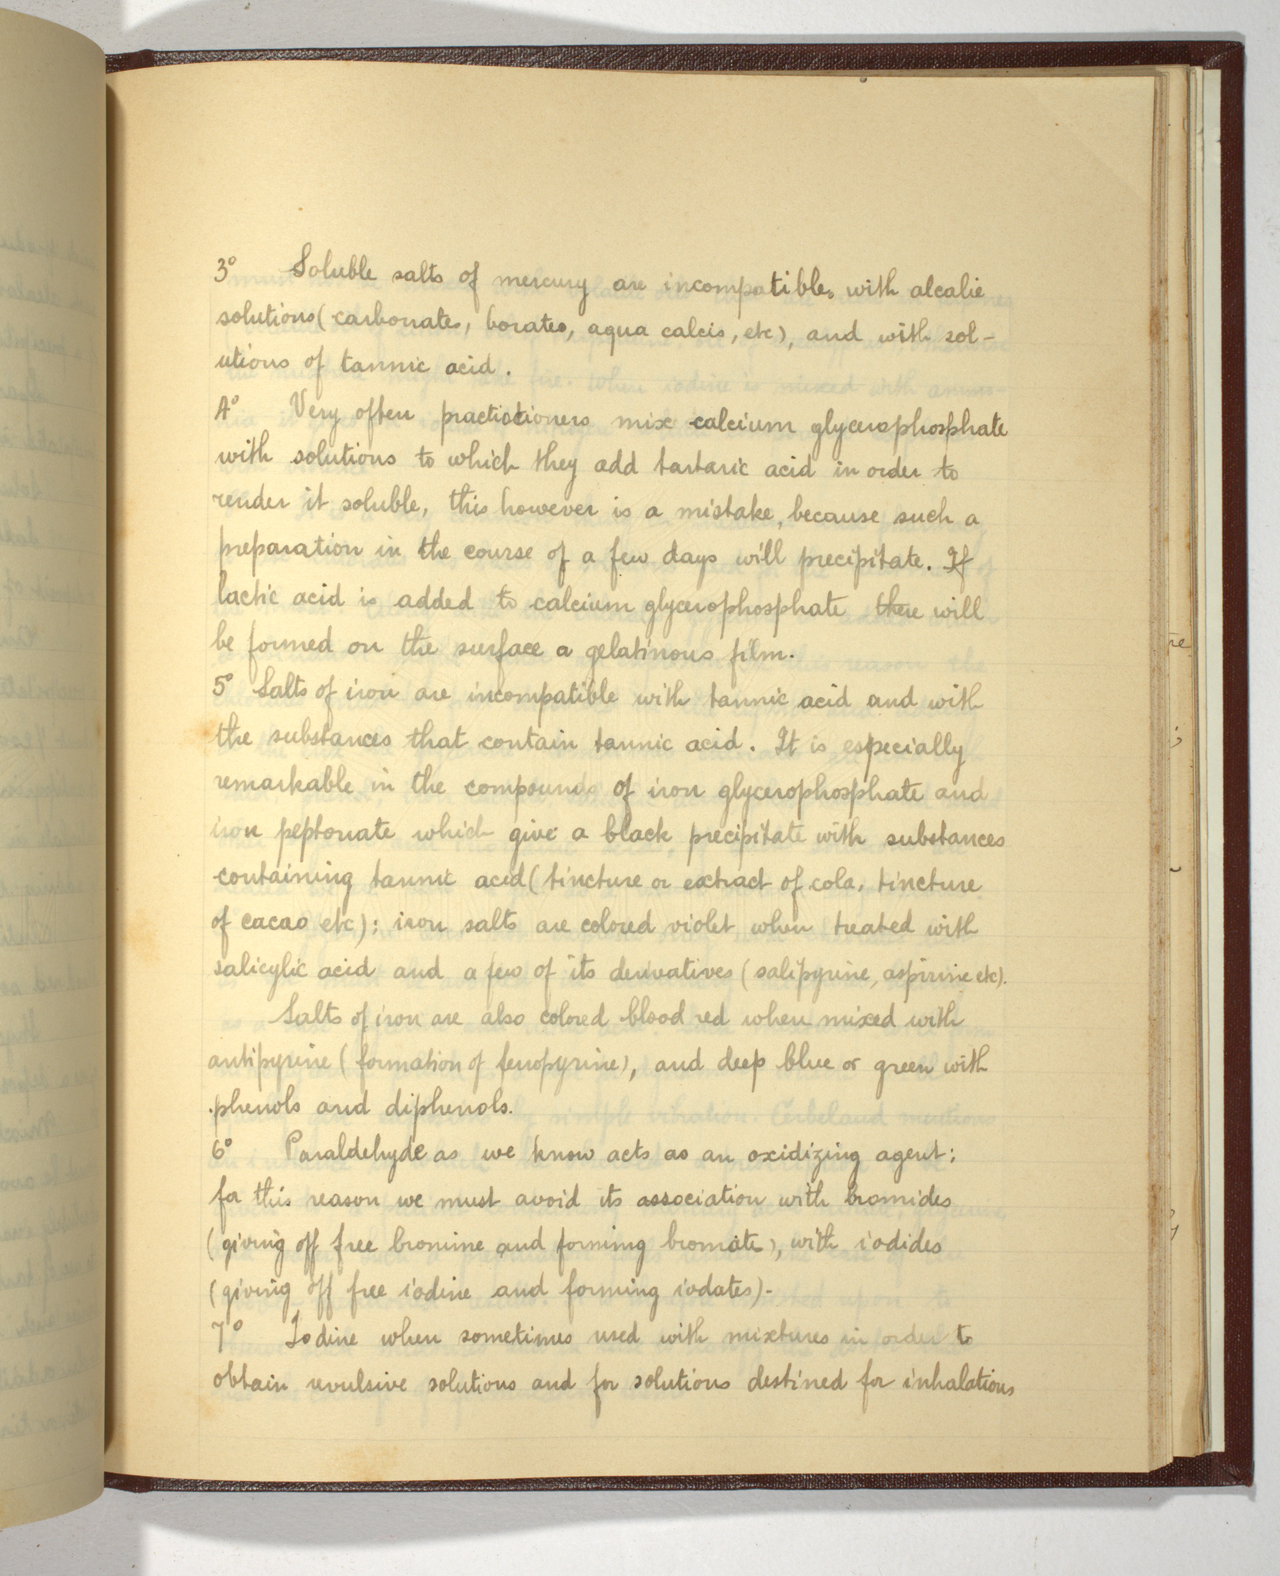 3° Soluble salts of mercury are incompatible, with alcalie
solutions (carbonates, borates, aqua calcis, etc), and with sol-
utions of tannic acid.
4° Very often practictioners mix calcium glycerophosphate
with solutions to which they add tartaric acid in order to
render it soluble, this however is a mistake, because such a
preparation in the course of a few days will precipitate. If
lactic acid is added to calcium glycerophosphate there will
be formed on the surface a gelatinous film.
5° Salts of iron are incompatible with tannic acid and with
the substances that contain tannic acid. It is especially
remarkable in the compounds of iron glycerophosphate and
iron peptonate which give a black precipitate with substances
containing tannic acid (tincture or extract of cola, tincture
of cacao etc); iron salts are colored violet when treated with
salicylic acid and a few of its derivatives (salipyrine, aspirine etc).
Salts of iron are also colored blood red when mixed with
antipyrine (formation of feropyrine), and deep blue or green with
phenols and diphenols.
6° Paraldehyde as we know acts as an oxidizing agent;
for this reason we must avoid its association with bromides
(giving off free bromine and forming bromate), with iodides
(giving off free iodine and forming iodates).
7° Iodine when sometimes used with mixtures in order to
obtain revulsive solutions and for solutions destined for inhalations